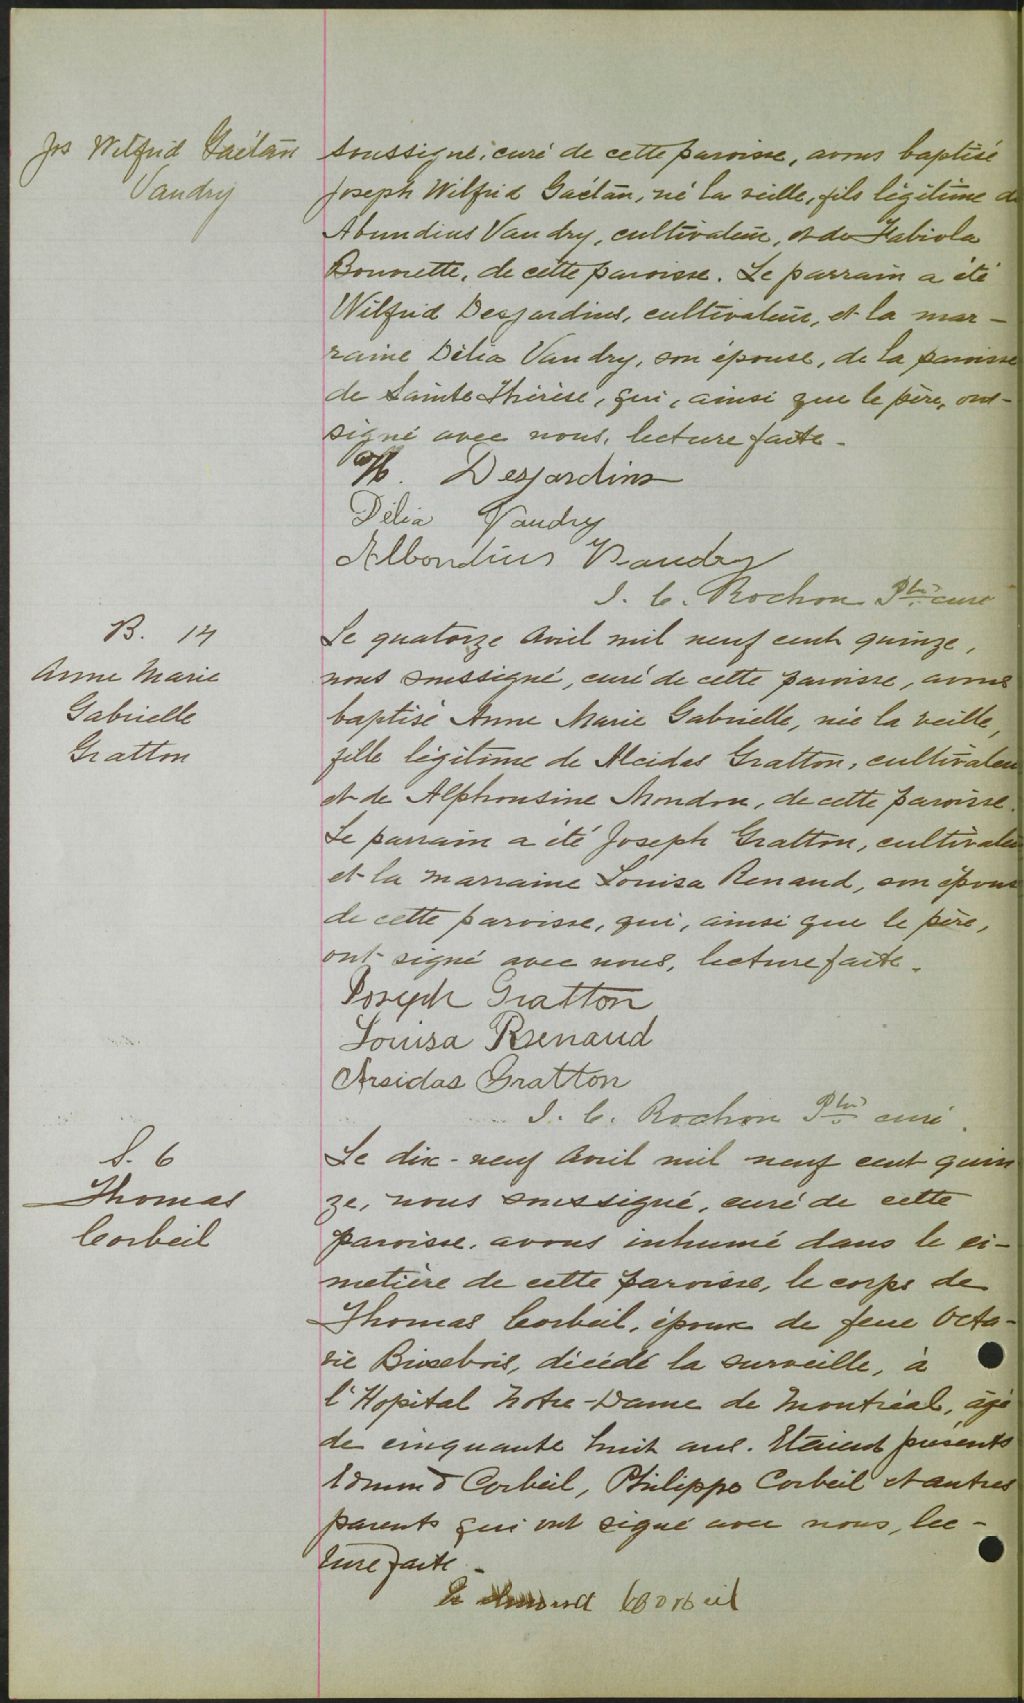 Jos Wilfrid Gaëtan
Vaudry
soussigné, curé de cette paroisse, avons baptisé
Joseph Wilfrid Gaëtan, né la veille, fils légitime de
Abundius Vaudry, cultivateur, et de Fabiola
Bourette, de cette paroisse. Le parrain a été
Wilfrid Desjardins, cultivateur, et la mar-
raine Délia Vaudry, son épouse, de la paroisse
de Sainte Thérèse, qui, ainsi que le père, ont
signé avec nous, lecture faite.
W. Desjardins
Délia Vaudry
Albondius Vaudry
J. C. Rochon Ptre curé
B. 14
Anne Marie
Gabrielle
Gratton
Le quatorze Avril mil neuf cent quinze,
nous soussigné, curé de cette paroisse, avons
baptisé Anne Marie Gabrielle, née la veille,
fille légitime de Alcidas Gratton, cultivateur
et de Alphonsine Mondou, de cette paroisse.
Le parrain a été Joseph Gratton, cultivateur
et la marraine Louisa Renaud, son épouse
de cette paroisse, qui, ainsi que le père,
ont signé avec nous, lecture faite.
Joseph Gratton
Louisa Renaud
Arsidas Gratton
J. C. Rochon Ptre curé.
S. 6
Thomas
Corbeil
Le dix-neuf Avril mil neuf cent quin
ze, nous soussigné, curé de cette
paroisse, avons inhumé dans le ci-
metière de cette paroisse, le corps de
Thomas Corbeil, époux de feue Octa-
vie Brisebois, décédé la surveille, à
l'Hopital Notre-Dame de Montréal, âgé
de cinquante huit ans. Etaient présents
Edmond Corbeil, Philippe Corbeil et autres
parents qui ont signé avec nous, lec-
ture faite.
Corbeil